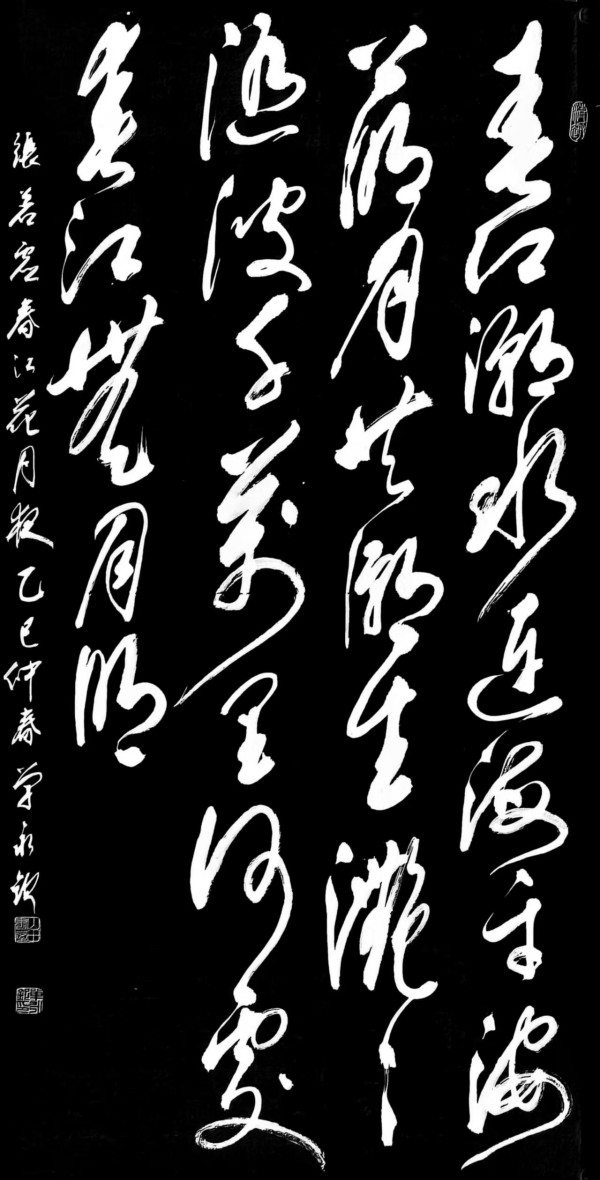 春江潮水連海平海
上明月共潮生灩〻
隨波千萬里何處
春江無月明
張若虛春江花月夜乙巳仲春永